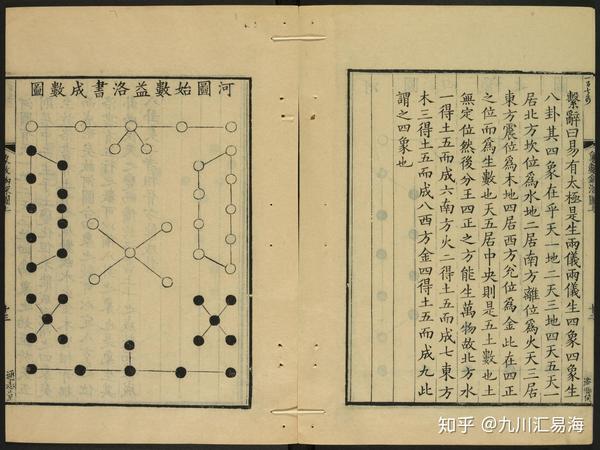 繫辭曰易有太極是生兩儀兩儀生四象四象生
八卦其四象在乎天一地二天三地四天五天一
居北方坎位爲水地二居南方離位爲火天三居
東方震位爲木地四居西方兌位爲金此在四正
之位而爲生數也天五居中央則是五土數也土
無定位然後分王四正之方能生萬物故北方水
一得土五而成六南方火二得土五而成七東方
木三得土五而成八西方金四得土五而成九此
謂之四象也
河圖始數益洛書成數圖
十三
知乎 @九川汇易海